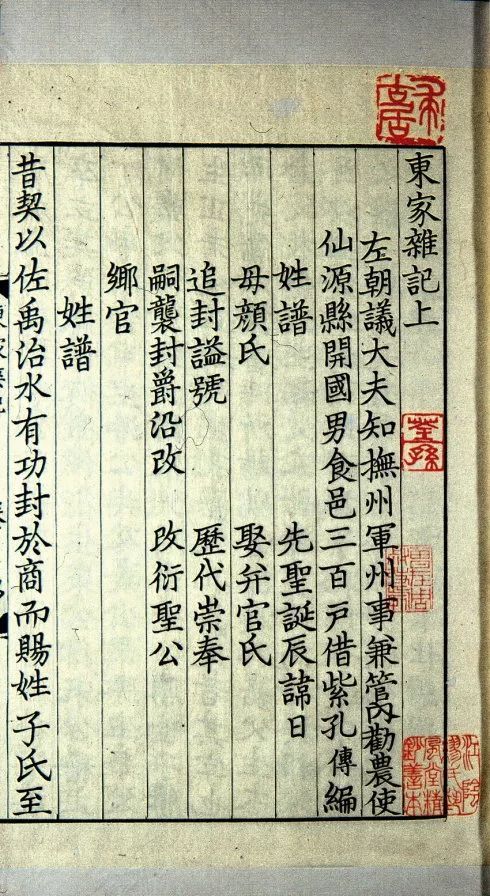 東家雜記上
左朝議大夫知撫州軍州事兼管內勸農使
仙源縣開國男食邑三百戸借紫孔傳編
姓譜　先聖誕辰諱日
母顏氏　娶幷官氏
追封謚號　歷代崇奉
嗣襲封爵沿改　改衍聖公
鄉官
姓譜
昔契以佐禹治水有功封於商而賜姓子氏至